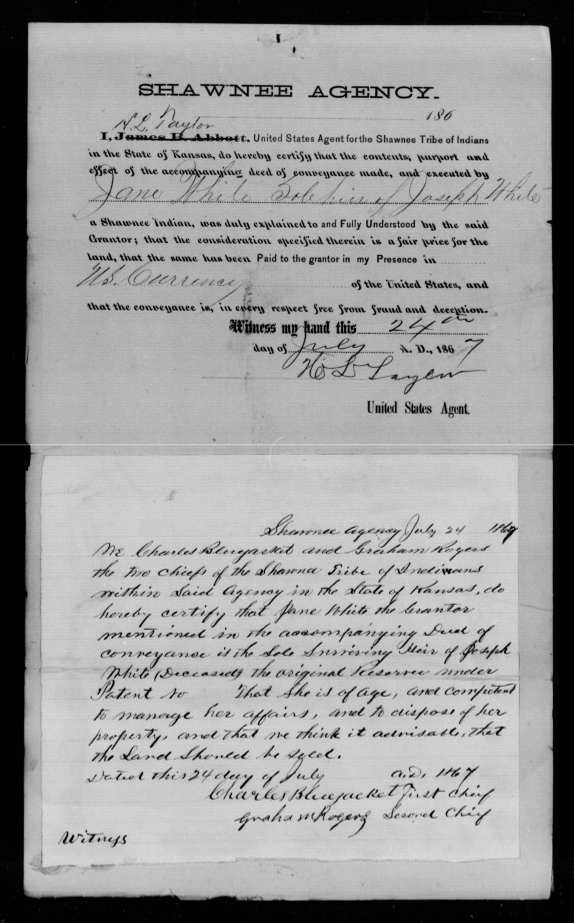 SHAWNEE AGENCY.
186
H. L. Taylor
I, James B. Abbott. United States Agent for the Shawnee Tribe of Indians
in the State of Kansas, do hereby certify that the contents, purport and
effect of the accompanying deed of conveyance made, and executed by
Jane White Sole heir of Joseph White
a Shawnee Indian, was duly explained to and Fully Understood by the said
Grantor; that the consideration specified therein is a fair price for the
land, that the same has been Paid to the grantor in my Presence in
U.S. Currency of the United States, and
that the conveyance is, in every respect free from fraud and deception.
Witness my hand this 24th
day of July A. D., 1867
H L Taylor
United States Agent.
Shawnee Agency July 24 1867
We Charles Bluejacket and Graham Rogers
the two chiefs of the Shawnee Tribe of Indians
within Said Agency in the State of Kansas, do
hereby certify that Jane White the Grantor
mentioned in the accompanying Deed of
conveyance is the Sole Surviving Heir of Joseph
White (Deceased) the original Reservee under
Patent No That She is of age, and competent
to manage her affairs, and to dispose of her
property, and that we think it advisable, that
the Land Should be Sold.
Dated this 24 day of July A.D. 1867
Charles Bluejacket First Chief
Graham Rogers Second Chief
Witness